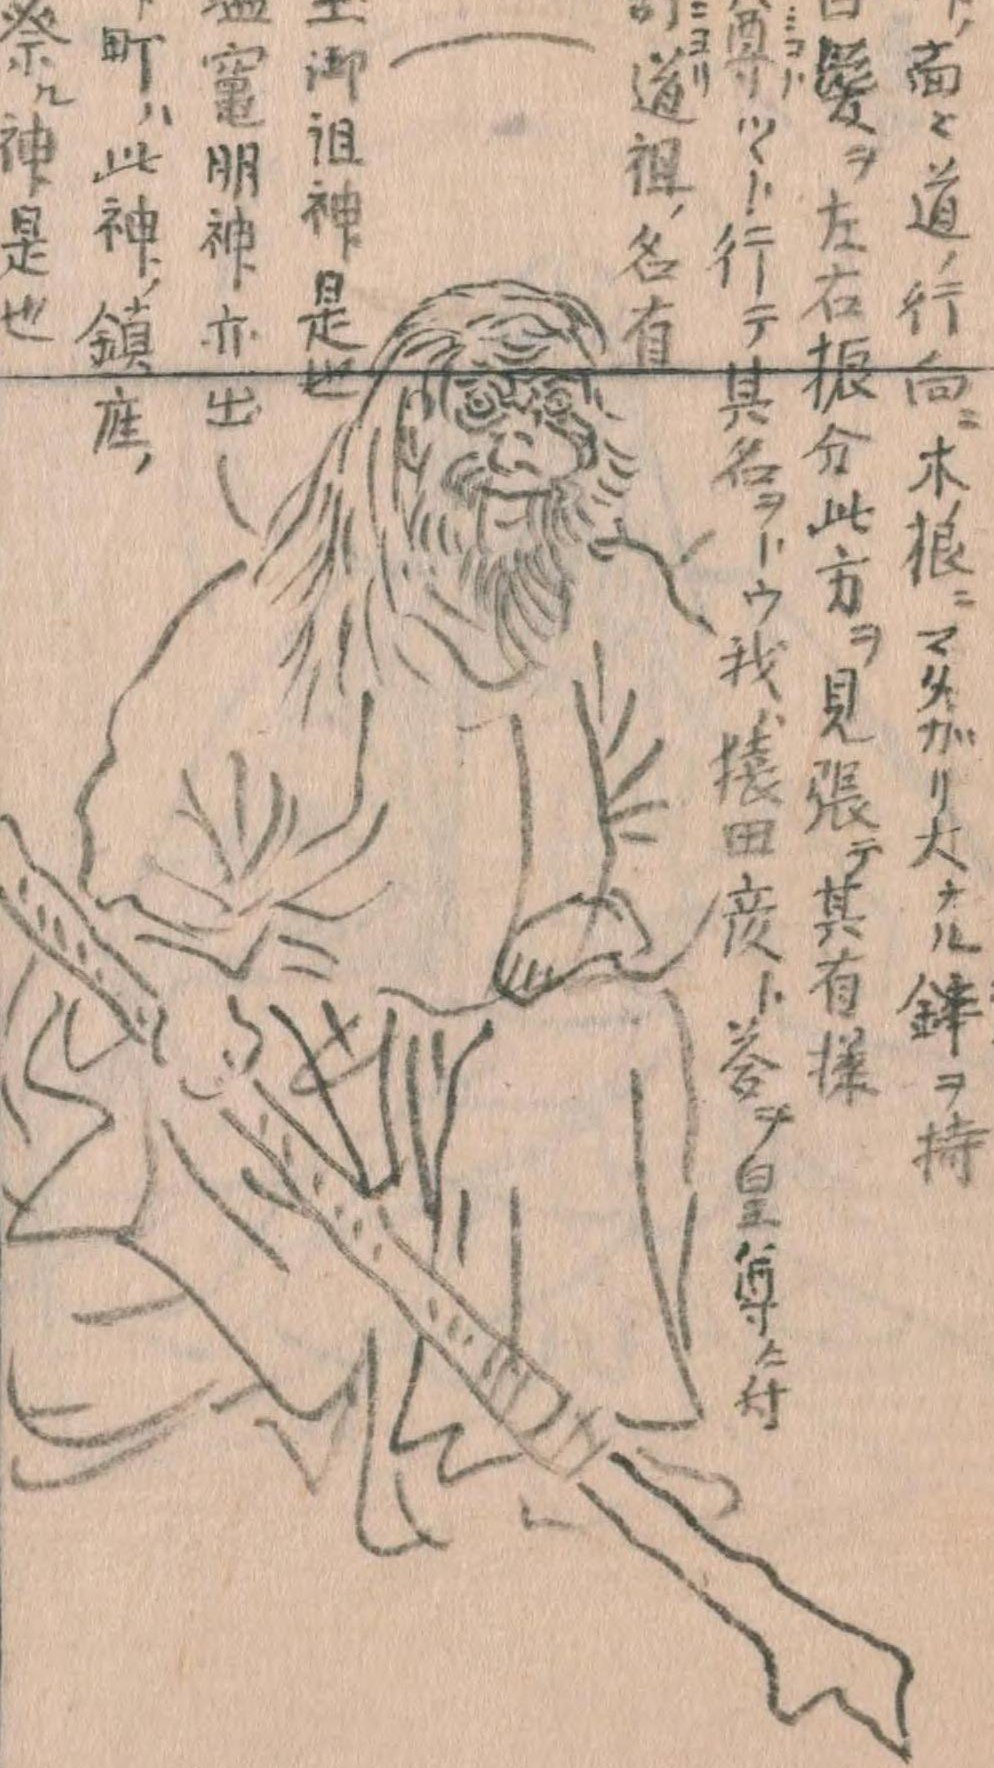 面と道ノ行向ニ木ノ根ニマタガリ大ナル鉾ヲ持
髪ヲ左右振分此方ヲ見張テ其有様
尊ツトト行テ其名ヲトウ我ハ猿田彦ト答ヲ皇尊ニ付
道祖ノ名有
御祖神是也
竈明神亦出
町ハ此神ノ鎮座ノ
祭ル神是也